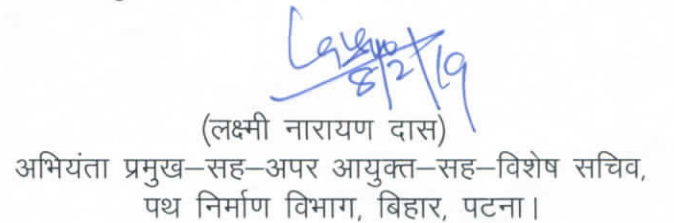 8/2/19
(लक्ष्मी नारायण दास)
अभियंता प्रमुख–सह–अपर आयुक्त–सह–विशेष सचिव,
पथ निर्माण विभाग, बिहार, पटना।